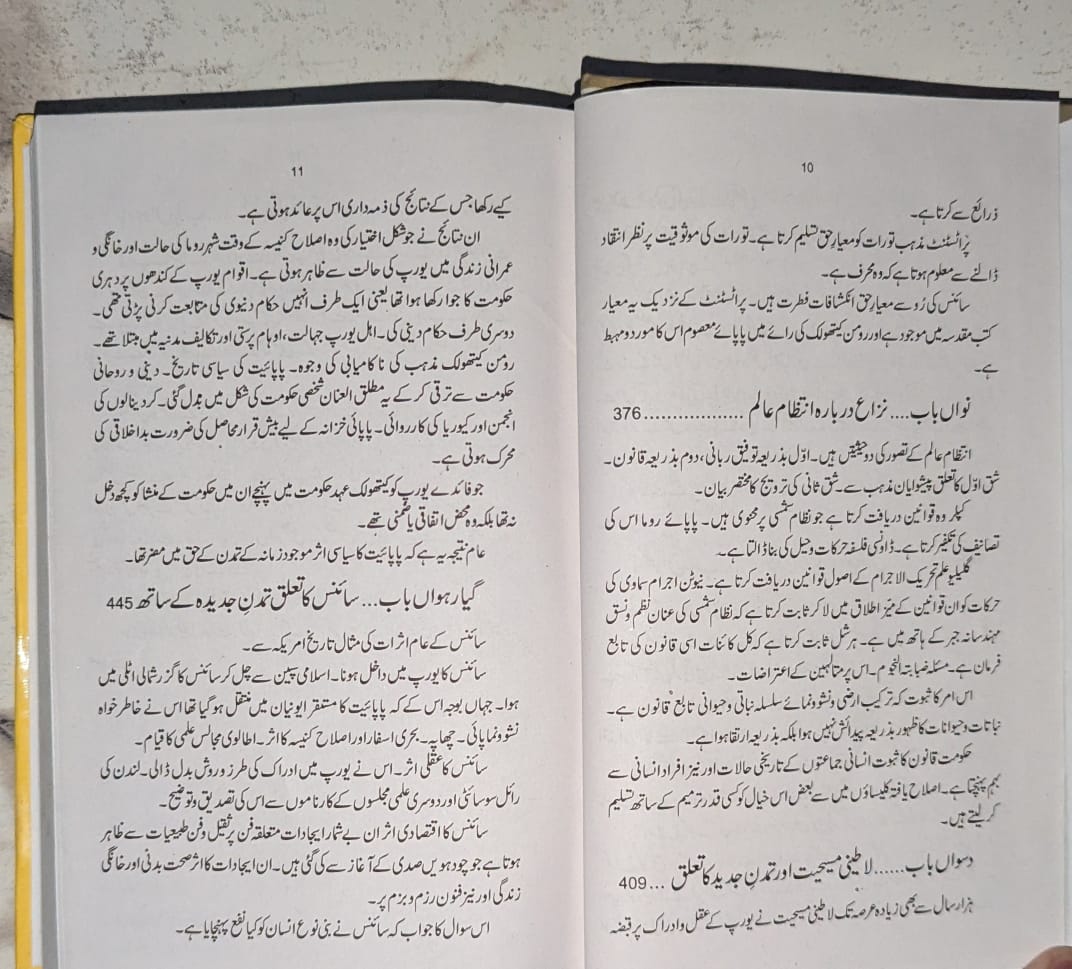 10
ذرائع سے کرتا ہے۔
پراٹسٹنٹ مذہب تورات کو معیارِ حق تسلیم کرتا ہے۔ تورات کی موثوقیت پر نظر انتقاد
ڈالنے سے معلوم ہوتا ہے کہ وہ محرف ہے۔
سائنس کی رُو سے معیارِ حق انکشافات فطرت ہیں۔ پراٹسٹنٹ کے نزدیک یہ معیار
کتب مقدسہ میں موجود ہے اور رومن کیتھولک کی رائے میں پاپائے معصوم اس کا مورد و مہبط
ہے۔
نواں باب.... نزاع دربارہ انتظام عالم ................. 376
انتظام عالم کے تصور کی دو حیثیتیں ہیں۔ اوّل بذریعہ توفیق ربانی، دوم بذریعہ قانون۔
شق اوّل کا تعلق پیشوایان مذہب سے۔ شق ثانی کی ترویج کا مختصر بیان۔
کپلر وہ قوانین دریافت کرتا ہے جو نظام شمسی پر محتوی ہیں۔ پاپائے روما اس کی
تصانیف کی تکفیر کرتا ہے۔ ڈاونسی فلسفہ حرکات و حیل کی بنا ڈالتا ہے۔
گلیلیو علم تحریک الاجرام کے اصول قوانین دریافت کرتا ہے۔ نیوٹن اجرام سماوی کی
حرکات کو ان قوانین کے حیّز اطلاق میں لا کر ثابت کرتا ہے کہ نظام شمسی کی عنان نظم و نسق
مہندسانہ جبر کے ہاتھ میں ہے۔ ہرشل ثابت کرتا ہے کہ کل کائنات اسی قانون کی تابع
فرمان ہے۔ مسئلہ ضبابتہ النجوم۔ اس پر متالہین کے اعتراضات۔
اس امر کا ثبوت کہ ترکیب ارضی و نشوونمائے سلسلہ نباتی و حیوانی تابع قانون ہے۔
نباتات و حیوانات کا ظہور بذریعہ پیدائش نہیں ہوا بلکہ بذریعہ ارتقا ہوا ہے۔
حکومت قانون کا ثبوت انسانی جماعتوں کے تاریخی حالات اور نیز افراد انسانی سے
بہم پہنچتا ہے۔ اصلاح یافتہ کلیساؤں میں سے بعض اس خیال کو کسی قدر ترمیم کے ساتھ تسلیم
کر لیتے ہیں۔
دسواں باب...... لاطینی مسیحیت اور تمدنِ جدید کا تعلق ... 409
ہزار سال سے بھی زیادہ عرصہ تک لاطینی مسیحیت نے یورپ کے عقل و ادراک پر قبضہ
11
کیے رکھا جس کے نتائج کی ذمہ داری اس پر عائد ہوتی ہے۔
ان نتائج نے جو شکل اختیار کی وہ اصلاح کنیسہ کے وقت شہر روما کی حالت اور خانگی و
عمرانی زندگی میں یورپ کی حالت سے ظاہر ہوتی ہے۔ اقوام یورپ کے کندھوں پر دہری
حکومت کا جوا رکھا ہوا تھا یعنی ایک طرف انہیں حکام دنیوی کی متابعت کرنی پڑتی تھی۔
دوسری طرف حکام دینی کی۔ اہل یورپ جہالت، اوہام پرستی اور تکالیف مدنیہ میں مبتلا تھے۔
رومن کیتھولک مذہب کی ناکامیابی کی وجوہ۔ پاپائیت کی سیاسی تاریخ۔ دینی و روحانی
حکومت سے ترقی کر کے یہ مطلق العنان شخصی حکومت کی شکل میں مبدل گئی۔ کردینالوں کی
انجمن اور کیوریا کی کارروائی۔ پاپائی خزانہ کے لیے بیش قرار محاصل کی ضرورت بداخلاقی کی
محرک ہوتی ہے۔
جو فائدے یورپ کو کیتھولک عہد حکومت میں پہنچے ان میں حکومت کے منشا کو کچھ دخل
نہ تھا بلکہ وہ محض اتفاقی یا ضمنی تھے۔
عام نتیجہ یہ ہے کہ پاپائیت کا سیاسی اثر موجود زمانہ کے تمدن کے حق میں مضر تھا۔
گیارہواں باب... سائنس کا تعلق تمدنِ جدیدہ کے ساتھ 445
سائنس کے عام اثرات کی مثال تاریخ امریکہ سے۔
سائنس کا یورپ میں داخل ہونا۔ اسلامی سپین سے چل کر سائنس کا گزر شمالی اٹلی میں
ہوا۔ جہاں بوجہ اس کے کہ پاپائیت کا مستقر ایونیان میں منتقل ہو گیا تھا اس نے خاطر خواہ
نشوونما پائی۔ چھاپہ۔ بحری اسفار اور اصلاح کنیسہ کا اثر۔ اطالوی مجالس علمی کا قیام۔
سائنس کا عقلی اثر۔ اس نے یورپ میں ادراک کی طرز و روش بدل ڈالی۔ لندن کی
رائل سوسائٹی اور دوسری علمی مجلسوں کے کارناموں سے اس کی تصدیق و توضیح۔
سائنس کا اقتصادی اثر ان بے شمار ایجادات متعلقہ فن جرثقیل و فن طبیعیات سے ظاہر
ہوتا ہے جو چودہویں صدی کے آغاز سے کی گئی ہیں۔ ان ایجادات کا اثر صحت بدنی اور خانگی
زندگی اور نیز فنون رزم و بزم پر۔
اس سوال کا جواب کہ سائنس نے بنی نوع انسان کو کیا نفع پہنچایا ہے۔